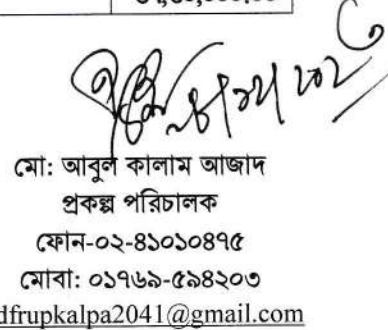 মো: আবুল কালাম আজাদ
প্রকল্প পরিচালক
ফোন-০২-৪১০১০৪৭৫
মোবা: ০১৭৬৯-৫৯৪২০৩
dfrupkalpa2041@gmail.com